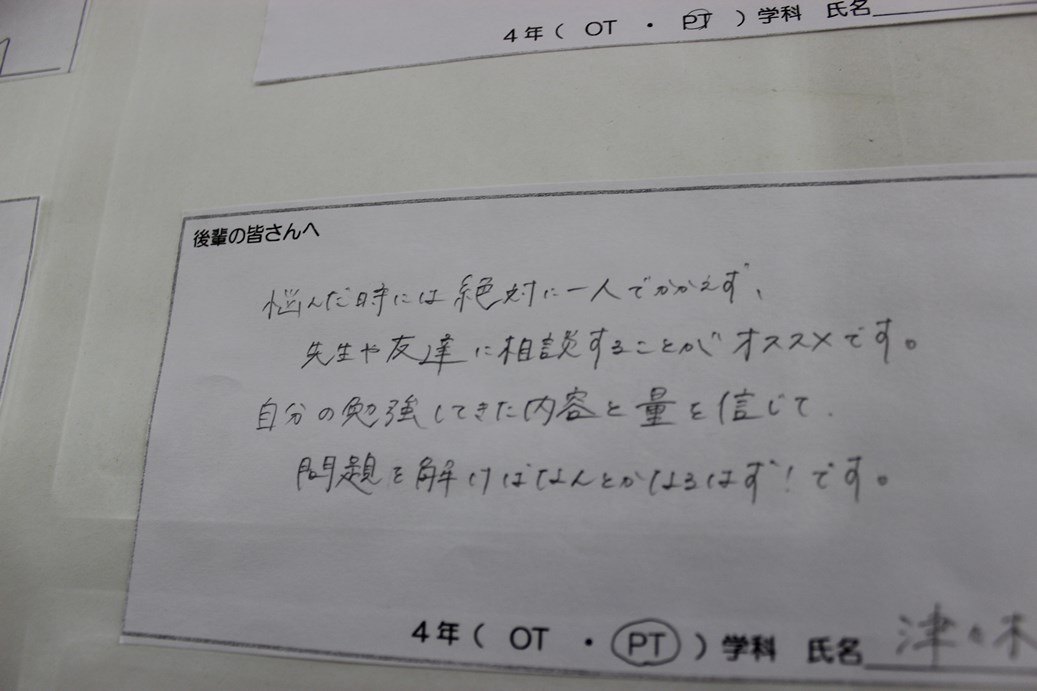 4年( OT ・ PT )学科 氏名
後輩の皆さんへ
悩んだ時には絶対に一人でかかえず、
先生や友達に相談することがオススメです。
自分の勉強してきた内容と量を信じて、
問題を解けばなんとかなるはず!です。
4年( OT ・ PT )学科 氏名 津々木